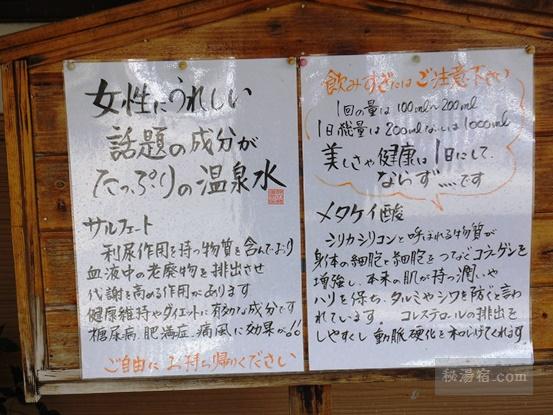 女性にうれしい
話題の成分が
たっぷりの温泉水
サルフェート
利尿作用を持つ物質を含んでおり
血液中の老廃物を排出させ
代謝を高める作用があります
健康維持やダイエットに有効な成分です
糖尿病、肥満症、痛風に効果が!!
ご自由にお持ち帰りください
飲みすぎにはご注意下さい
1回の量は100ml〜200ml
1日総量は200mlないしは1000ml
美しさや健康は1日にして、
ならず……です
メタケイ酸
シリカ・シリコンと呼ばれる物質が
身体の細胞と細胞をつなぐコラーゲンを
増強し、本来の肌が持つ潤いや
ハリを保ち、タルミやシワを防ぐと言わ
れています コレステロールの排出を
しやすくし動脈硬化を
秘湯宿.com